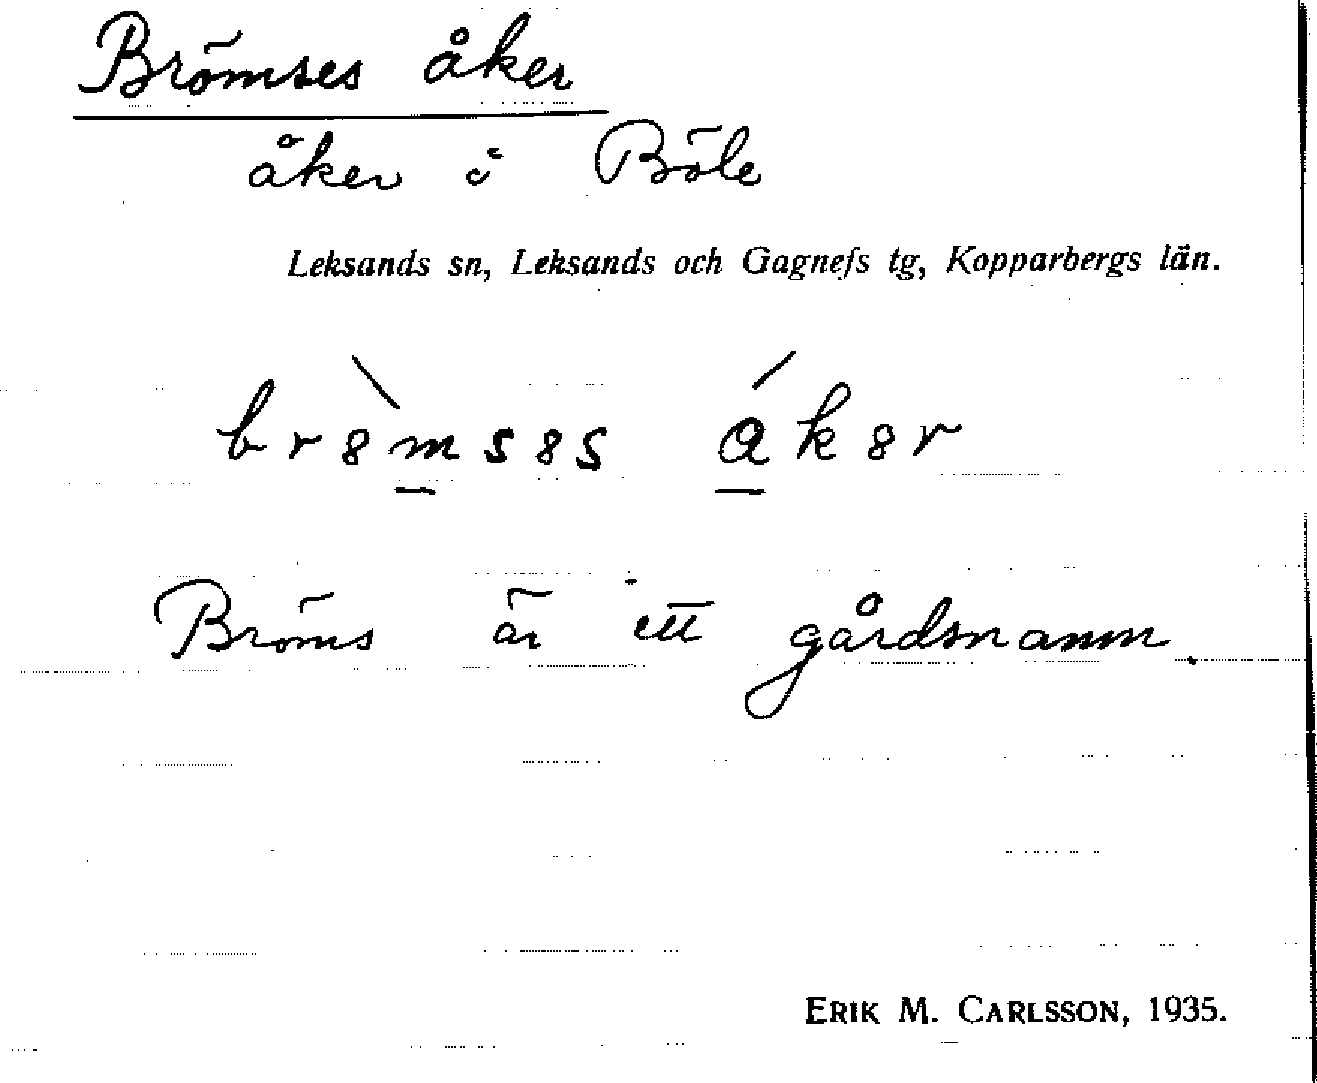 Brömses åker
åker i Böle
Leksands sn, Leksands och Gagnefs tg, Kopparbergs län.
br8̀m̲s8s á̲k8r
Bröms är ett gårdsnamn.
ERIK M. CARLSSON, 1935.